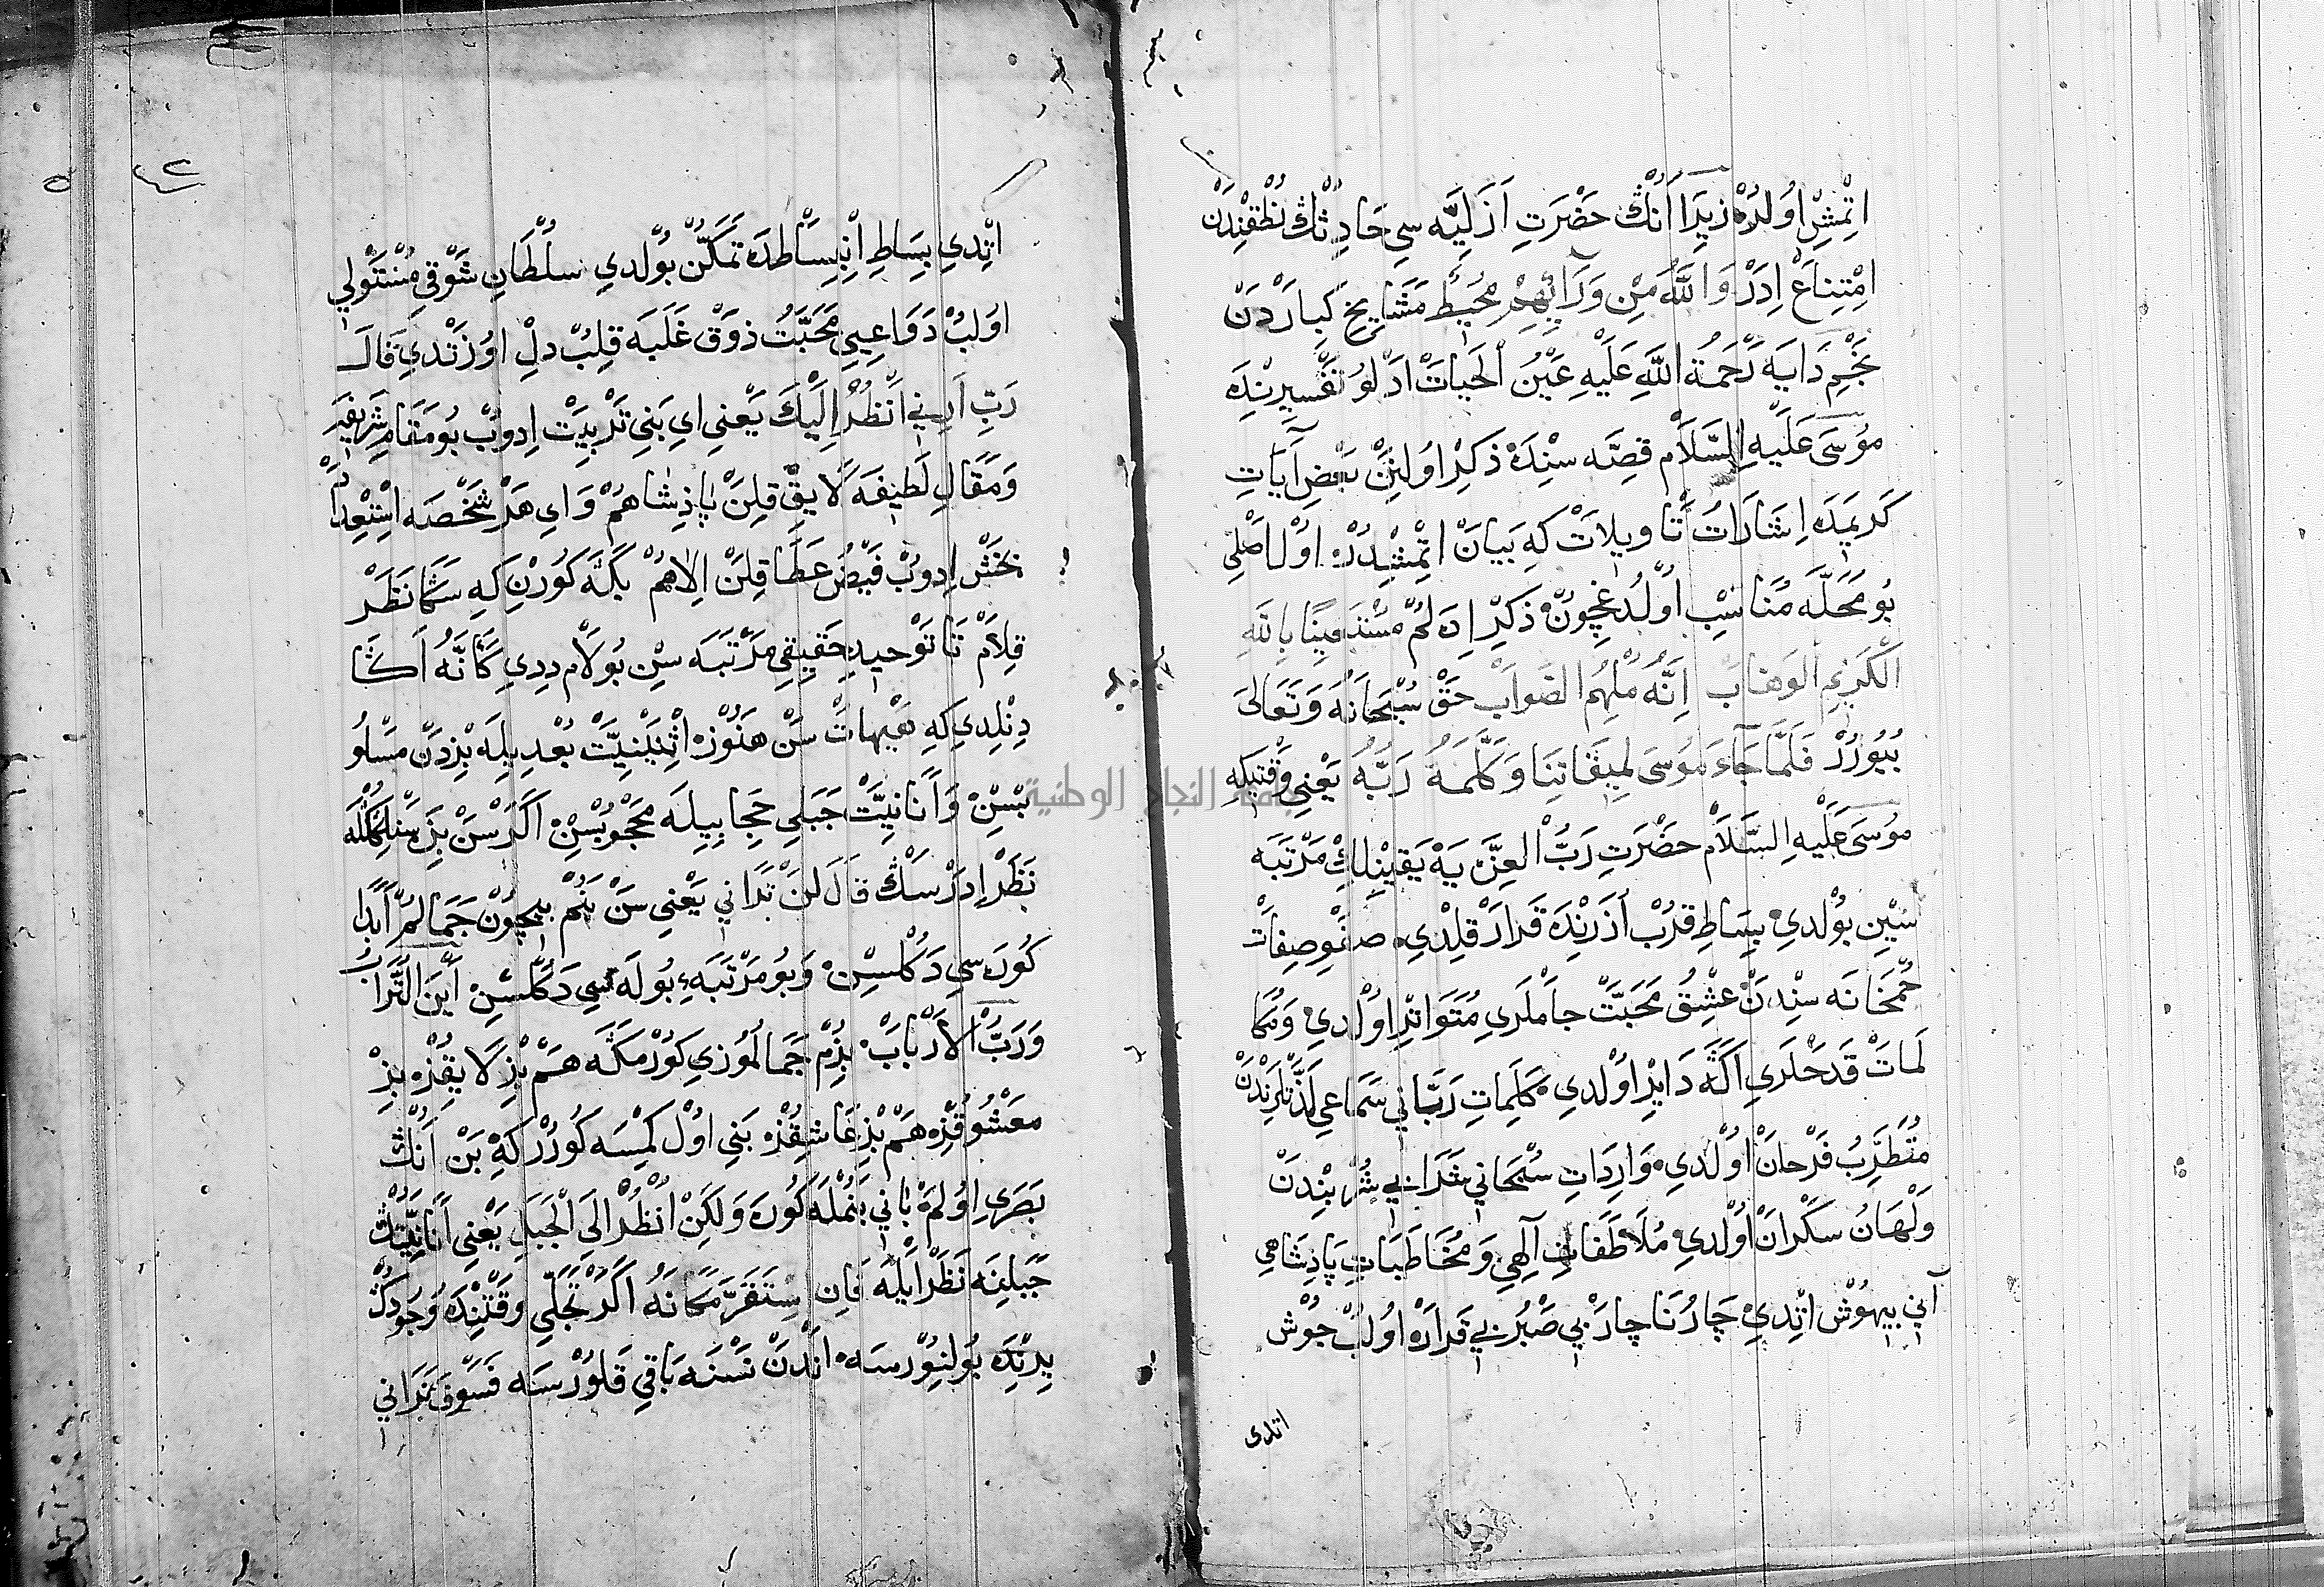 اتمش اولدی زیرا انڭ حضرت ازلیه سی حادثڭ نطقندن
امتناع ادر والله من ورائهم محیط مشایخ کباردن
نجم دایه رحمة الله علیه عین الحیات ادلو تفسیرنده
موسی علیه السلام قصه سنده ذکر اولنن بعض آیات
کریمه ده اشارات تاویلات که بیان اتمشدر اول اصلی
بو محله مناسب اولدغیچون ذکر اده لم مستعینا بالله
الکریم الوهاب انه ملهم الصواب حق سبحانه وتعالی
بیورر فلما جآء موسی لمیقاتنا وکلمه ربه یعنی وقتیکه
موسی علیه السلام حضرت رب العزه یه یقینلك مرتبه
سین بولدی بساط قرب ازرنده قرار قلدی صفو صفات
خمخانه سندن عشق محبت جاملری متواتر اولدی وکا
لمات قدحلری اکه دایر اولدی کلمات ربانی سماعی لذتلرندن
متطرب فرحان اولدی واردات سبحانی شرابی شربندن
ولهان سکران اولدی ملاطفات آلهی ومخاطبات پاذشاهی
آنی بیهوش اتدی چار ناچار بی صبر بی قرار اولب جوش
اتدی
اتدی بساط انبساطده تمکن بولدی سلطان شوقی مستولی
اولب دواعیی محبت ذوق غلبه قلب دل اوزتدی قال
رب ارنی انظر الیك یعنی ای بنی تربیت ادوب بو مقام شریفه
ومقال لطیفه لایق قلن پاذشاهم وای هر شخصه استعداد
بخش ادوب فیض عطا قلن الاهم بکه کورن که سکا نظر
قلام تا توحید حقیقی مرتبه سین بولام ددی کانه اکا
دنلدی که هیهات سن هنوز اثنینیت بعدیله بزدن مسلو
بسن وانانیت جبلی حجابیله محجوبسن اکر سن بزه سنلکله
نظر ادرسڭ قال لن ترانی یعنی سن بنم بیچون جمالم ابدا
کوره سی دکلسن وبو مرتبه ء بوله سی دکلسن این التراب
ورب الارباب بزم جمالموزی کورمکه هم بز لایقز بز
معشوقز هم بز عاشقز بنی اول کمسه کورر که بن انڭ
بصری اولم بانی بنمله کوره ولکن انظر الی الجبل یعنی انانیتڭ
جبلینه نظر ایله فان استقر مکانه اکر تجلی وقتنده وجودڭ
یرنده بولنورسه اندن نسنه باقی قلورسه فسوف ترانی